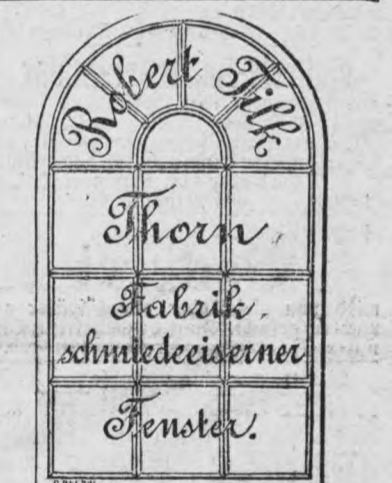 Robert Tilk
Thorn,
Fabrik
schmiedeeiserner
Fenster.